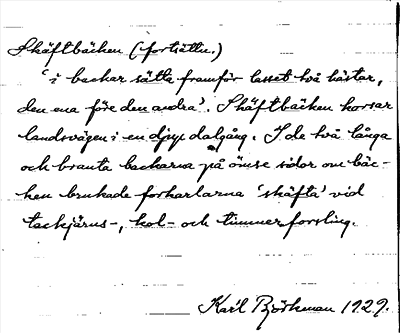 Skäftbäcken (fortsättn.)
'i backar sätta framför lasset två hästar,
den ena före den andra'. Skäftbäcken korsar
landsvägen i en djup dalgång. I de två långa
och branta backarna på ömse sidor om bäc-
ken brukade forkarlarna 'skäfta' vid
tackjärns-, kol- och timmerforsling.
Karl Björkman 1929.